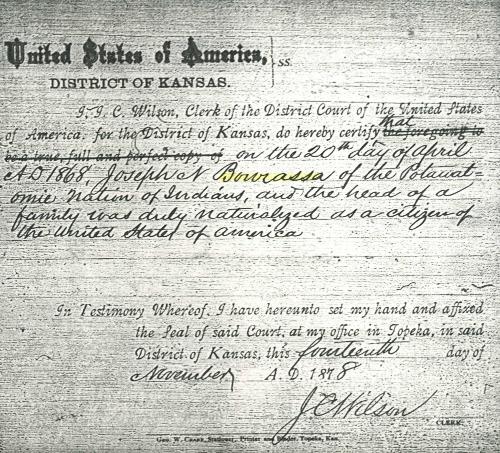 United States of America, } ss.
DISTRICT OF KANSAS.
I, J. C. Wilson, Clerk of the District Court of the United States
of America, for the District of Kansas, do hereby certify that the foregoing to
be a true, full and perfect copy of on the 20th day of April
A D 1868 Joseph N Bourassa of the Potawat-
omie Nation of Indians, and the head of a
family was duly naturalized as a citizen of
the United States of America
In Testimony Whereof, I have hereunto set my hand and affixed
the Seal of said Court, at my office in Topeka, in said
District of Kansas, this fourteenth day of
November A. D. 1878
J. C. Wilson
CLERK.
Geo. W. Crane, Stationer, Printer and Binder, Topeka, Kan.